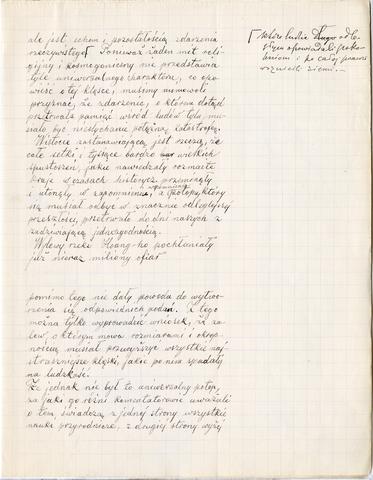 ale jest echem i pozostałością zdarzenia
rzeczywistego Ponieważ żaden mit reli-
gijny i kosmogoniczny nie przedstawia
tyle uniwersalnego charakteru, co opo-
wieść o tej klęsce, musimy mimowoli
przyznać, że zdarzenie, o którem dotąd
przetrwała pamięć wśród ludów tylu mu-
siało być niesłychanie potężną katastrofą.
Wielce zastanawiającą jest rzeczą, że
całe setki i tysiące bardzo wielkich
spustoszeń, jakie nawiedzały rozmaite
kraje w czasach historycz. przeminęły
i utonęły w zapomnieniu, a potopu, który
się musiał odbyć w znacznie odleglejszej
przeszłości, przetrwało do dni naszych z
zadziwiającą jednozgodnością.
Wylewy rzeki Hoang-ho pochłaniały
już nieraz miliony ofiar
pomimo tego nie dały powodu do wytwo-
rzenia się odpowiednich podań. Z tego
można tylko wyprowadzić wniosek, że za-
lew, o którym mowa rozmiarami i okrop-
nością musiał przewyższyć wszystkie naj
straszniejsze klęski, jakie poniżej spadały
na ludzkość.
Że jednak nie był to uniwersalny potop,
za jaki go różni komentatorowie uważali
o tem, świadczą z jednej strony wszystkie
nauki przyrodnicze, z drugiej strony wyżej
ludzie długo
opowiadali
i po całej prawie
ziemi.